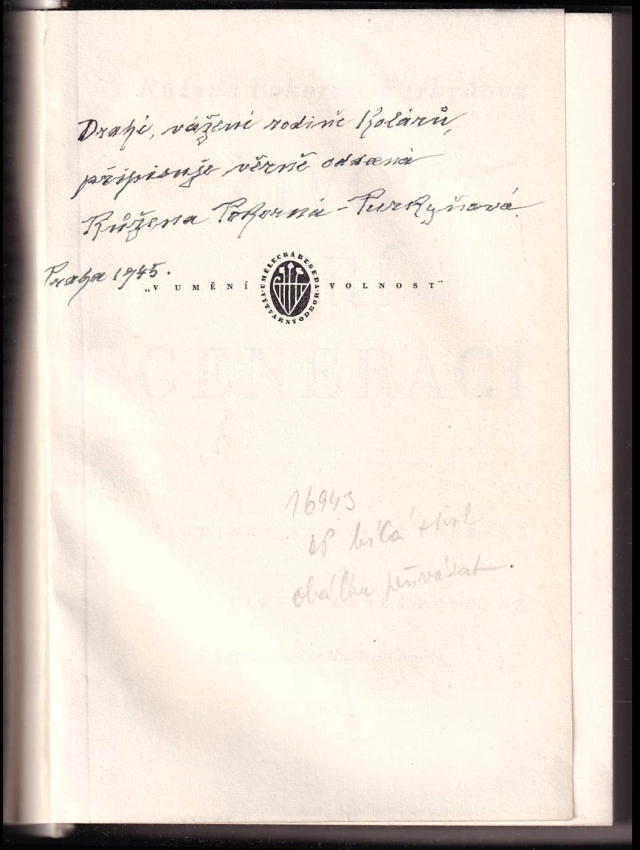 Drahé, vážené rodině Kolářů,
připisuje věrně oddaná
Růžena Pokorná-Purkyňová.
Praha 1945.
„V UMĚNÍ VOLNOST“
UMĚLECKÁ BESEDA · VÝTVARNÝ ODBOR ·
GENERACÍ
16943
obálku přivázat.